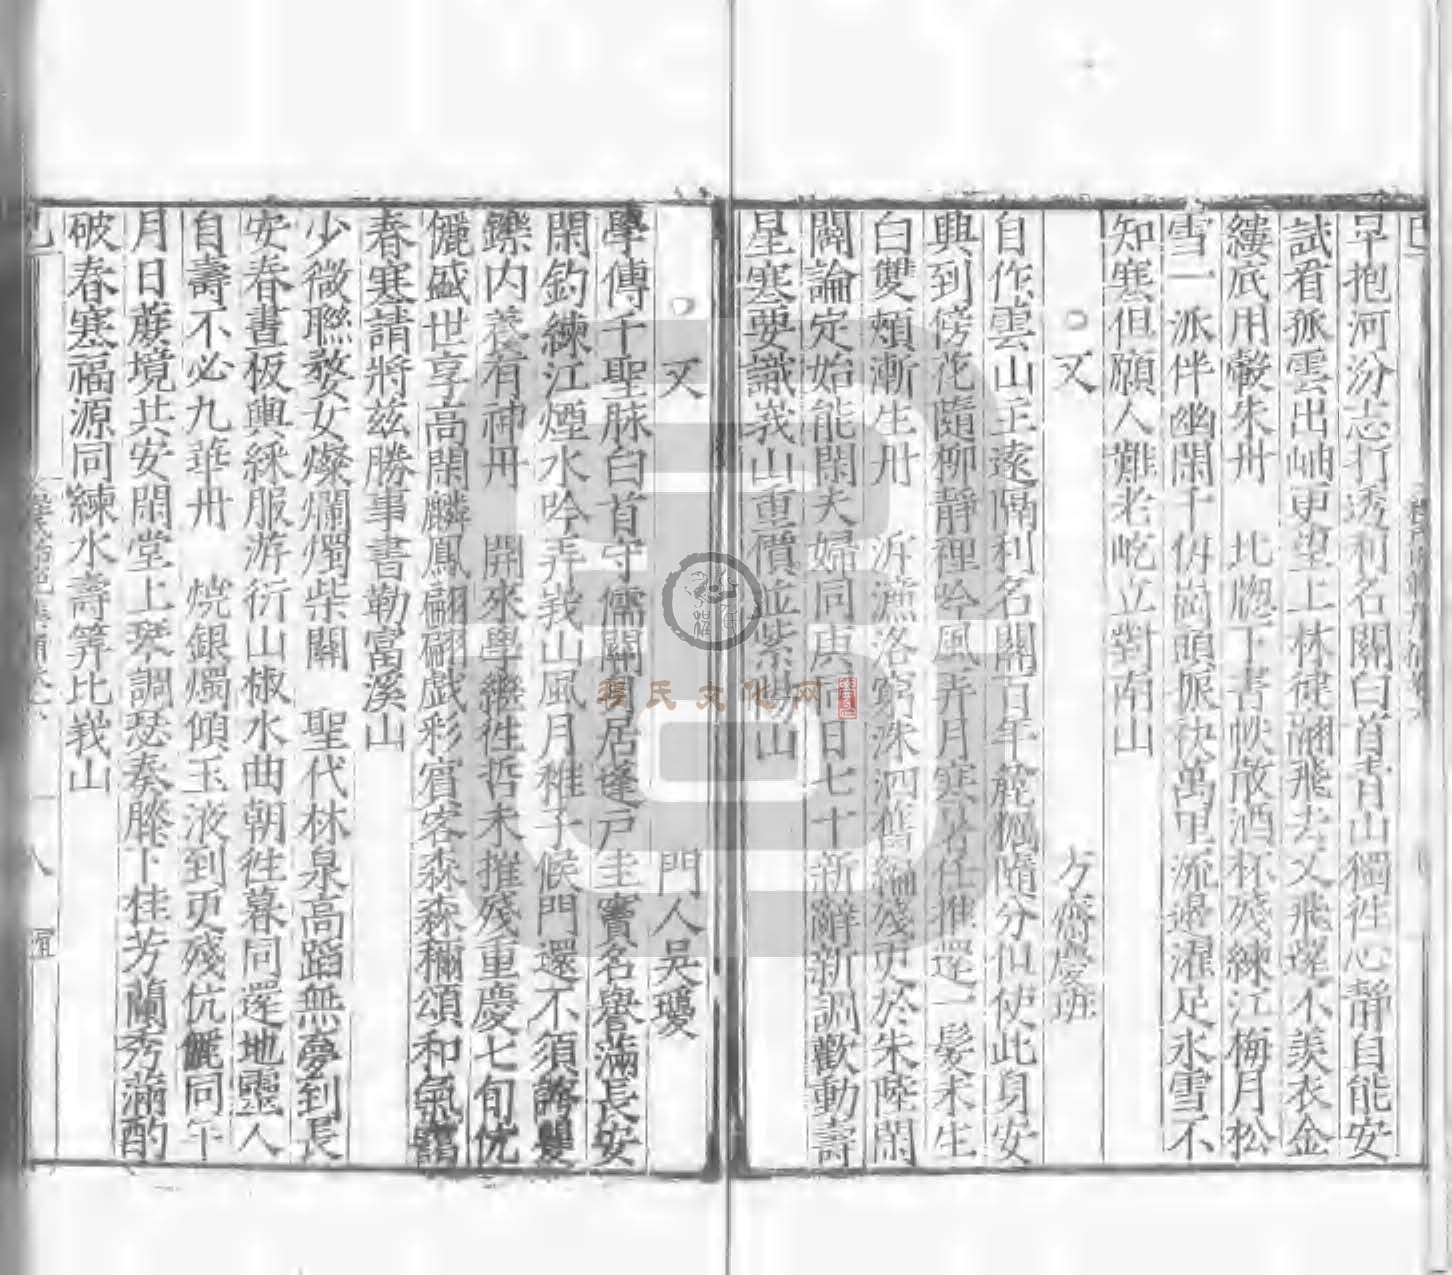 早抱河汾志打透利名關白首青山獨徃心靜自能安
試看孤雲出岫更望上林律翮飛去又飛還不羡衣金
縷底用轂朱丹　北牕下書帙散酒杯殘練江梅月松
雪一派伴幽閑千仞岡頭振袂萬里流邊濯足氷雪不
知寒但願人難老屹立對南山
又　方齋慶班
自作雲山主遠隔利名關百年蹤跡隨分但使此身安
興到傍花隨柳靜裡吟風弄月寒暑任推還一髮未生
白雙頰漸生丹　泝濂洛窮洙泗舊編殘更於朱陸閑
闢論定始能閑夫婦同庚日七十新辭新調歡動壽
星寒要識峩山重價並紫陽山
又　門人吳瓊
學傳千聖脉白首守儒關閑居蓬戸圭竇名譽滿長安
閑釣練江煙水吟弄峩山風月稚子候門還不須誇矍
鑠内養有神丹　開來學繼徃哲未摧殘重慶七旬伉
儷盛世享高閑麟鳳翩翩戯彩賔客森森稱頌和氣靄
春寒請將兹勝事書勒富溪山
少微聯婺女燦爛燭柴關　聖代林泉高蹈無夢到長
安春晝板輿綵服游衍山椒水曲朝徃暮同還地靈人
自壽不必九華丹　燒銀燭傾玉液到更殘伉儷同年
月日蔗境共安閑堂上琹調瑟奏膝下桂芳蘭秀滿酌
破春寒福源同練水壽筭比峩山
程氏文化网